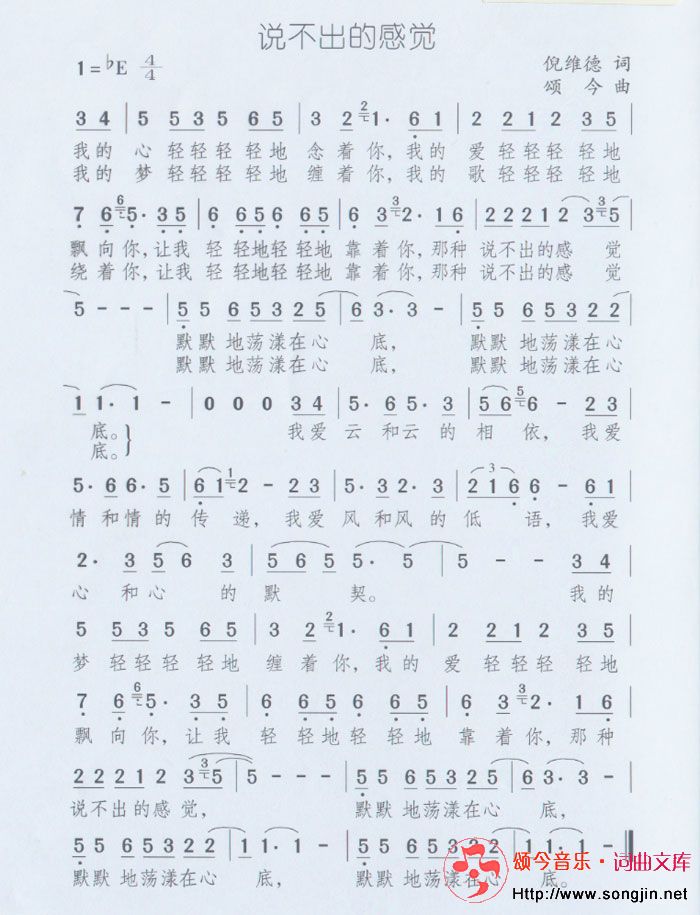 说不出的感觉
1=♭E 4/4
倪维德 词
颂今 曲
3 4 | 5 5 3 5 6 5 | 3 2 2 1· 6 1 | 2 2 1 2 3 5 |
我的 心 轻轻 轻 轻地 念 着 你，我的 爱 轻轻轻 轻地
我的 梦 轻轻 轻 轻地 缠 着 你，我的 歌 轻轻轻 轻地
7 6 6 5· 3 5 | 6 6 5 6 6 5 | 6 3 3 2· 1 6 | 2 2 2 2 1 2 3 3 5 |
飘 向 你，让我 轻 轻地轻 轻地 靠 着 你，那种 说不出的感 觉
绕 着 你，让我 轻 轻地轻 轻地 靠 着 你，那种 说不出的感 觉
5 - - - | 5 5 6 5 3 2 5 | 6 3· 3 - | 5 5 6 5 3 2 2 |
默默 地荡漾在心 底， 默默 地荡漾在心
默默 地荡漾在心 底， 默默 地荡漾在心
1 1· 1 - | 0 0 0 3 4 | 5· 6 5· 3 | 5 6 5 6 - 2 3 |
底。 我爱 云 和云 的 相 依，我爱
底。
5· 6 6· 5 | 6 1 1 2 - 2 3 | 5· 3 2· 3 | 2 1 6 6 - 6 1 |
情 和情 的 传 递，我爱 风 和风 的 低 语，我爱
2· 3 5 6 3 | 5 6 5 5· 5 | 5 - - 3 4 |
心 和 心 的 默 契。 我的
5 5 3 5 6 5 | 3 2 2 1· 6 1 | 2 2 1 2 3 5 |
梦 轻轻 轻 轻地 缠 着 你，我的 爱 轻轻 轻 轻地
7 6 6 5· 3 5 | 6 6 5 6 6 5 | 6 3 3 2· 1 6 |
飘 向 你，让我 轻 轻地 轻 轻地 靠 着 你，那种
2 2 2 2 1 2 3 3 5 | 5 - - - | 5 5 6 5 3 2 5 | 6 3· 3 - |
说不出的感 觉， 默默 地荡漾在心 底，
5 5 6 5 3 2 2 | 1 1· 1 - | 5 5 6 5 3 2 2 | 1 1· 1 - ‖
默默 地荡漾在心 底， 默默 地荡漾在心 底。
颂今音乐·词曲文库
Http://www.songjin.net